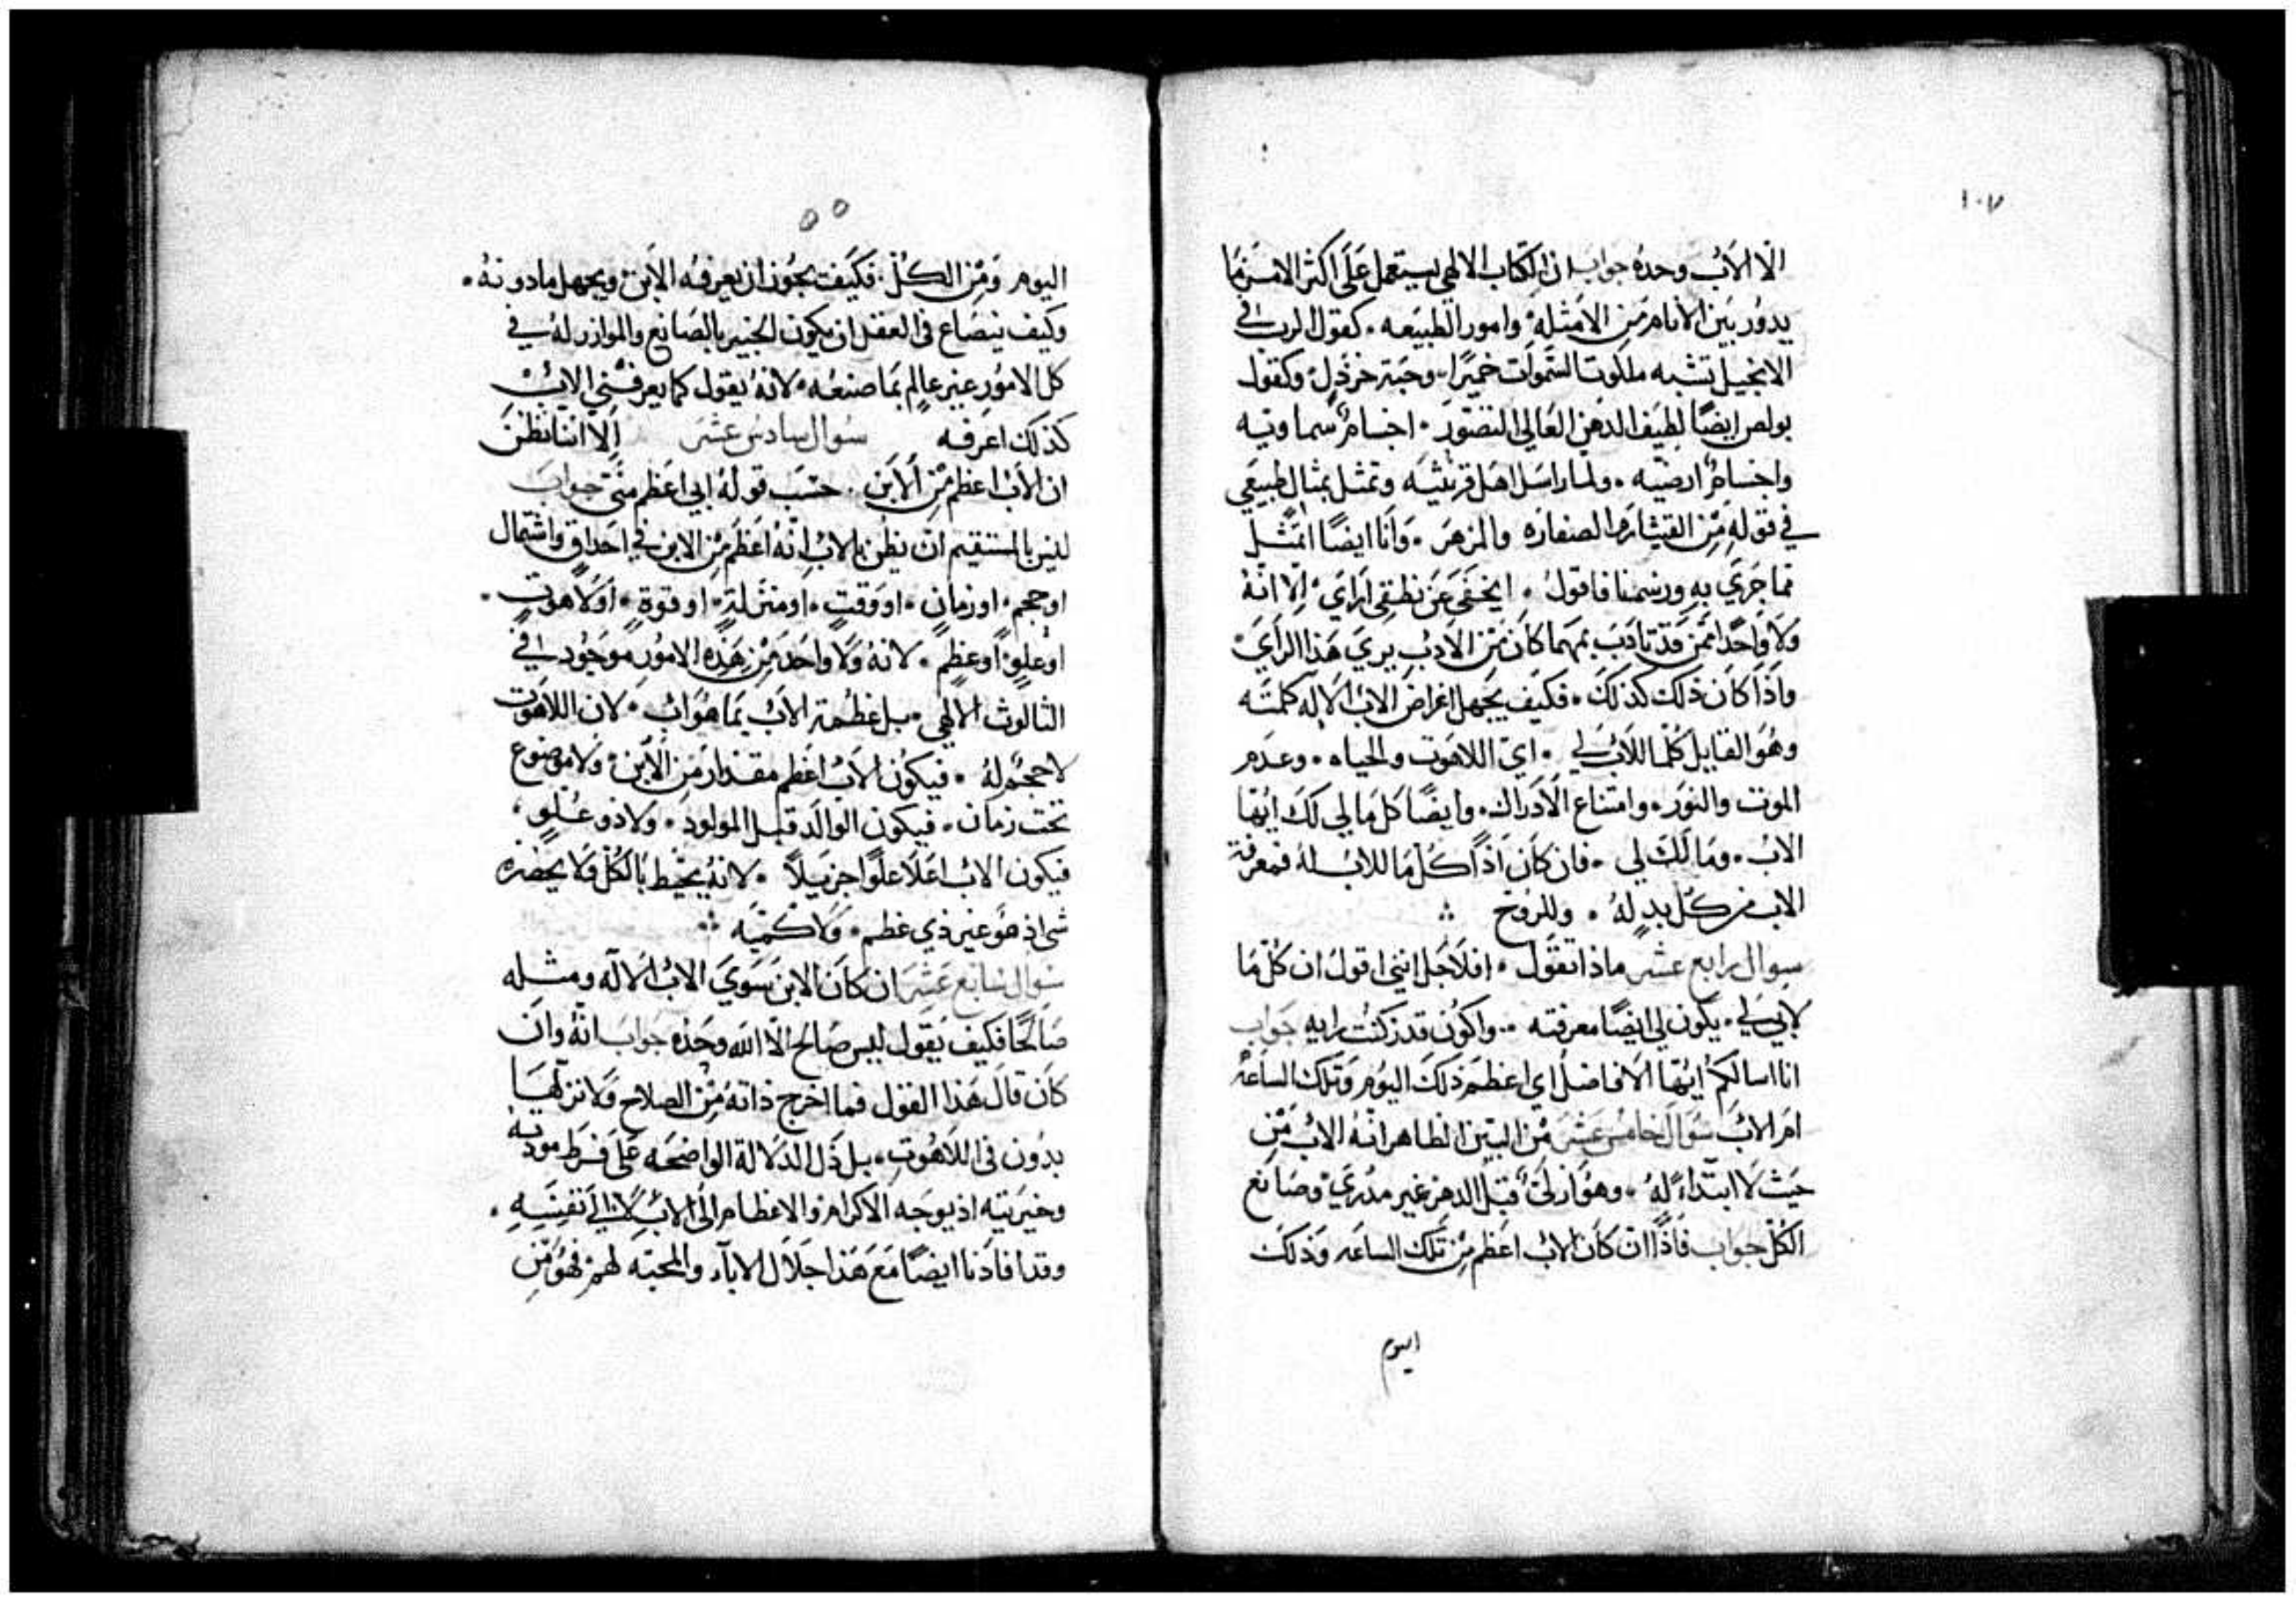 ١٠٧
الّا الاَبُ وحدهُ جواب ان الكتاب الالهي يستعمل عَلَى اكثر الامر مَا
يدوُر بَين الانام مِن الامثلهْ وامور الطبيَعه . كقول الرب في
الانجيل تشبه ملكوت السَّموات خميرًا . وحَبة خرْدَل وكقول
بولص ايضًا لطيَف الدهن العَالي التصّور . اجسامٌ سماويه
واجسامٌ ارضيه . ولما راسَل اهَل قرنثيه وتمثل بمثال طبيعَي
في قوله مِن القيثارَه الصنفاره والمزهَر . وَانَا ايضًا اتمثّل
بما جَرَي به ورسمنا فاقولُ . ايخفَى عَن نطقي اَرَايَ الا انهُ
وَلا وَاحدًا ممَّن قدْ تادَب بمَهما كَان مِن الاَدب يرَيَ هَذا الرايَ
واذَا كَان ذلك كذلكَ . فكيف يجَهل اغراضَ الابُ الالَه كلمتَه
وهُوَ القايل كُلّما للاَبُ لي . ايّ اللاهَوت والحياه . وعدَم
الموت والنوَر . وامتناع الاَدرَاك . وايضًا كل مَا لي لكَ ايهَا
الابُ . وَما لَكَ لي . فان كَان اذًا كُل مَا للابُ لهُ فمعرفة
الاب من كُل بدٍ لهُ . وللروُح ⁘
سوال رابع عشر ماذا تقَول . افلاَجَل انني اقولُ ان كُل مَا
لابي لي . يكَون لي ايضًا معرفته .. واكَون قد زكنْت رايه جَواب
انا اسالكمُ ايُهَا الافاضلُ اي اعظَم ذلكَ اليوُم وَتلك الساعَه
امَ الابُ سَوال خَامس عشر مْن البيّن الظاهر انهُ الابُ مْن
حَيث لا ابتداءَ لهُ . وهوُ ازلَي قبَل الدهِر غير مدرَي وصَانع
الكُلّ جواب فَاذًا ان كَان الابُ اعَظم مِن تلك الساعَه وَذلكَ
اليوم
٥٥
اليوم وَمِن الكُلّ . فكَيف يجوُز ان يعرفهُ الاَبن ويجهل مادونهُ .
وكَيف ينصَاع في العقل ان يكون الخبير بالصَانع والموازر لهُ في
كل الامُور غير عالِم بمَا صنعُه . لانهُ يقول كما يعرفنْي الابُ
كذلك اعَرفه سُوال سادسُ عشر اَلا اننا نظَن
ان الاَبُ اعظم مْن الاَبن . حسَب قولهُ ابي اعَظم منّي جواب
ليس بالمستقيم انْ يظن بالابُ انهُ اعَظَم مِن الابن في احَداقٍ واشتمال
او حجمٍ . او زمانٍ . او وَقتٍ . او منَزلةٍ . او قوةٍ . اوَ لاهَوتٍ .
او علوٍ او عظِمٍ . لانهُ وَلا واحدَ مِْن هَذِه الامُور موَجُود في
الثالوث الالهي . بل عظَمة الاَبُ بمَا هُو ابُ . لان اللاهَوت
لا حجمَ لهُ . فيكُون الاَبُ اعَظم مقدار مِن الاَبن . وَلا موضوع
تحت زمان . فيكون الوالَد قبل المولود . وَلا ذو عُلوٍ .
فيكون الابُ اعَلا علوًا جزيلاً . لانهُ يحُيط بالكُلّ وَلا يحصُره
شي اذ هوَ غير ذي عظم . وَلا كمّيَه ⁘
سُوال سابع عَشر ان كَان الابن سَوَي الابُ الاله ومثله
صَالحًا فكيف يَقول ليس صَالح الّا الله وحَدهُ جوَاب انهُ وان
كَان قال هَذا القول فما اخرج ذاتهُ مْن الصلاح وَلا نزلهَا
بدُون في اللاَهُوت . بل دَل الدلاَلة الواضحَه عَلَى فرط مودته
وخيَريَته اذ يوجَه الاكرام والاعظام الَى الابُ لاَ الَي نفسِه .
وقد افادَنا ايضًا مَعَ هَذا جَلاَل الاباء والمحبَه لهمْ فهُو مِن